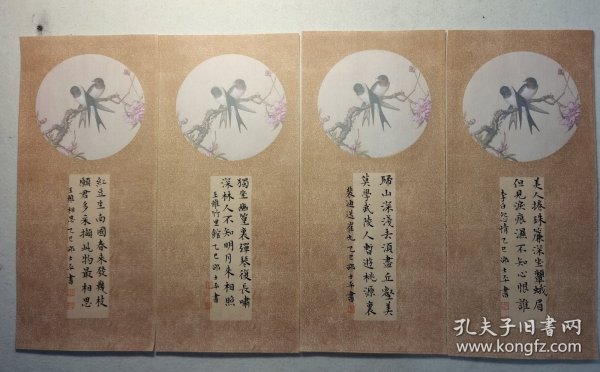 美人捲珠簾深坐顰蛾眉
但見淚痕濕不知心恨誰
李白怨情乙巳士平書
歸山深淺去須盡丘壑美
莫學武陵人暫遊桃源裏
裴迪送崔九乙巳士平書
獨坐幽篁裏彈琴復長嘯
深林人不知明月來相照
王維竹里館乙巳士平書
紅豆生南國春來發幾枝
願君多采擷此物最相思
王維相思乙巳士平書
孔夫子旧书网
www.kongfz.com